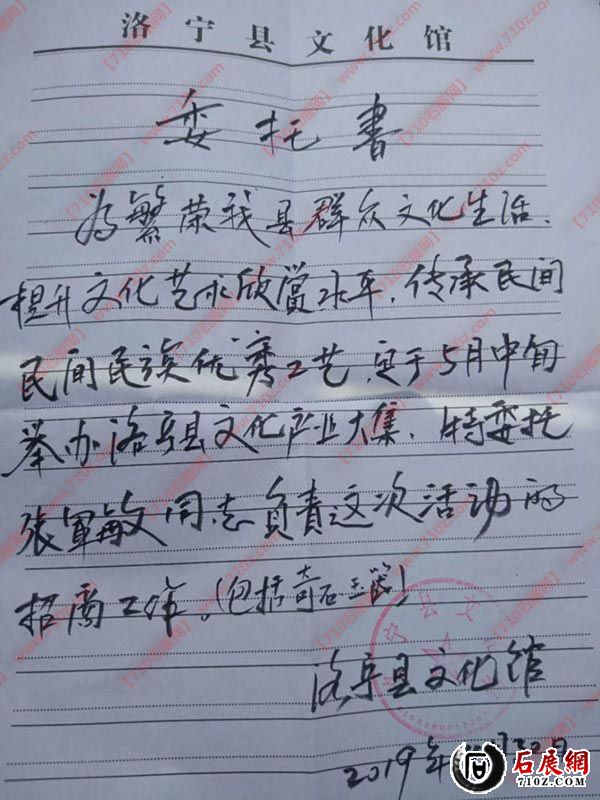 洛宁县文化馆
委托书
为繁荣我县群众文化生活、
提升文化艺术欣赏水平,传承民间
民间民族优秀工艺,定于5月中旬
举办洛宁县文化产业大集,特委托
张军敏同志负责这次活动的
招商工作。(包括奇石玉器)
洛宁县文化馆
2019年 月20日
石展網
710z.com
【710石展网】
http://www.710z.com